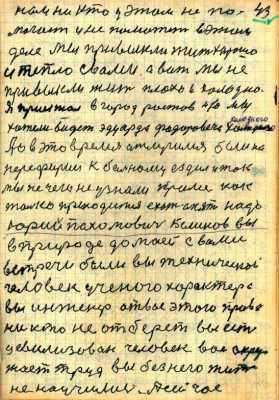 нам ни кто у этом не по- 43
могает и не поможет в этом
деле мы привыкли жит хорошо
и тепло с вами. а вот мы не
привыкли жит плохо и холодно.
Я приехал в город ростов что мы
холодного
хотели видет эдуарда федоровеча
А в это время отлучился был на
переферии к больному ездил и ток
мы не чего не узнали проме как
толко приходится ехат опят надо
юрий пахомович Клиноков вы
в природе до моей с вами
встречи были вы технической
человек ученого характера
вы инженер от вас этого права
ни кто не отберет вы ест
цевилизован человек вас окру-
жает труд вы без него жит
не научилис. А сей час